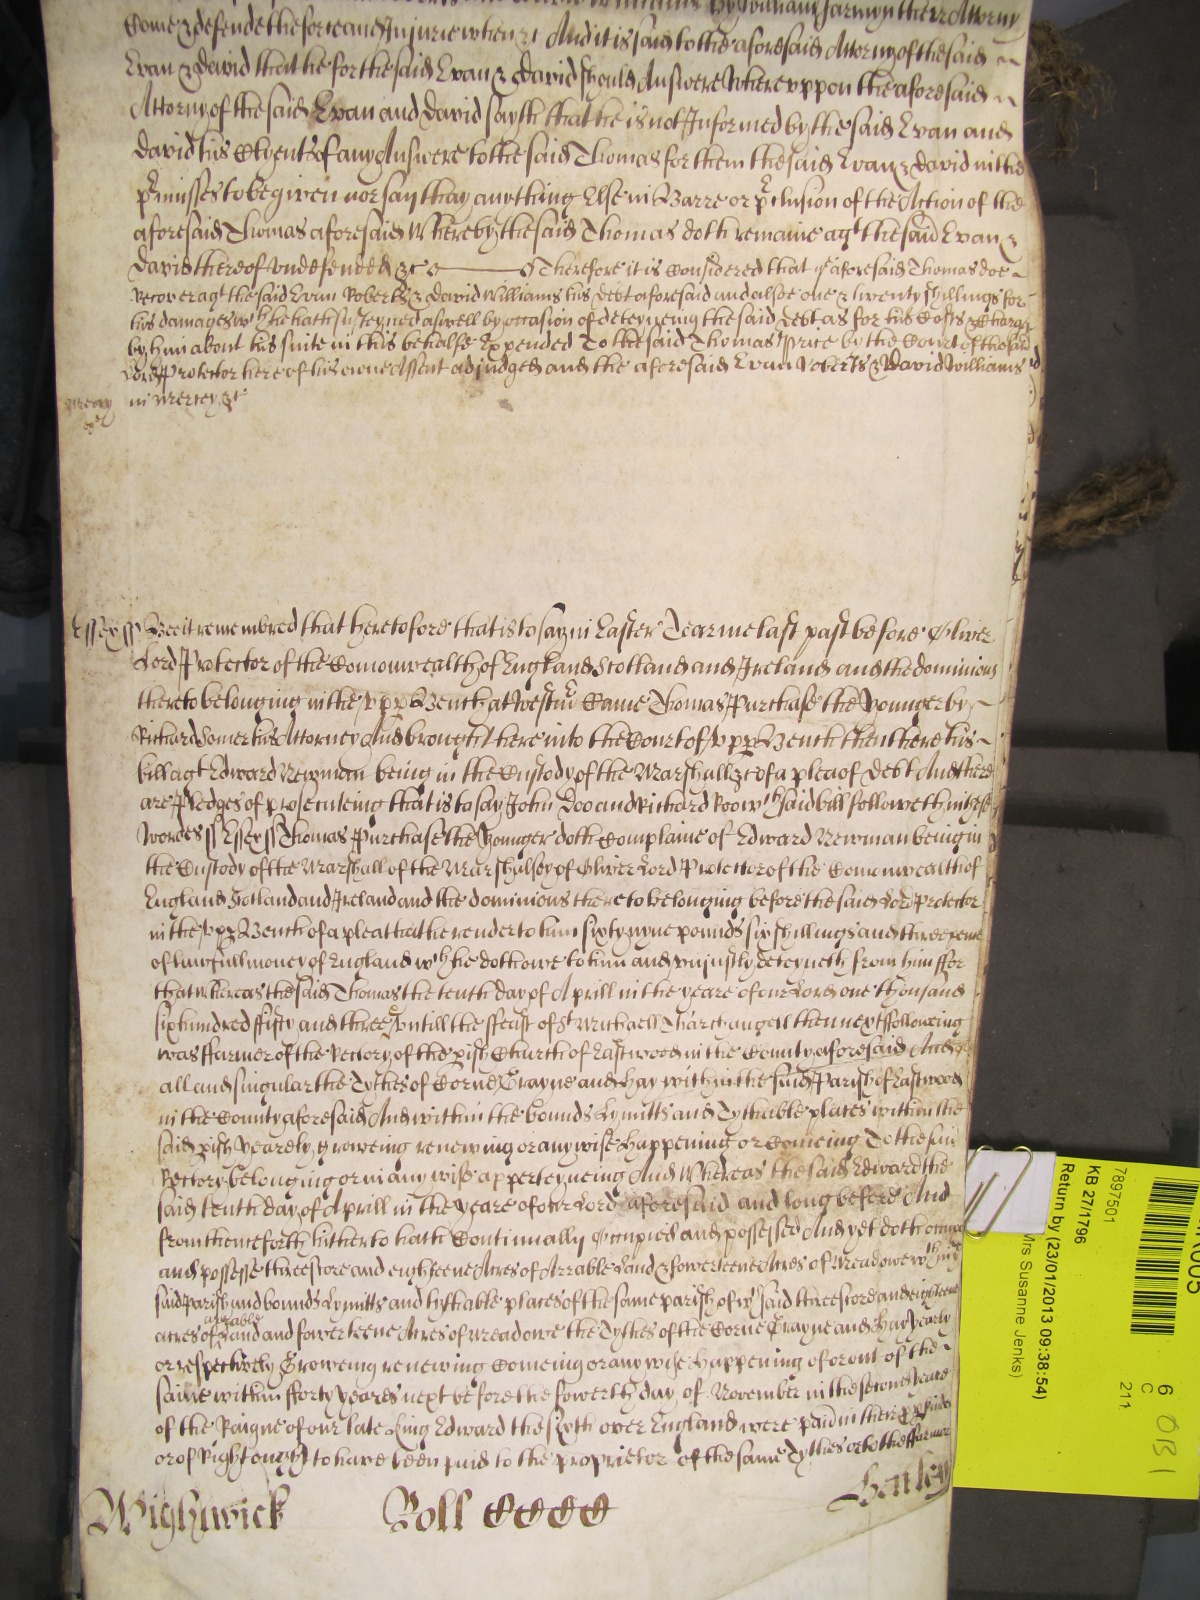 by Graham Jarmyn their Attorny
Come & defende the force and Injurie when &c And it is said to the aforesaid Attorny of the said
Evan & David that he for the said Evan & David should Answere Whereuppon the aforesaid
Attorny of the said Evan and David sayth that he is not Informed by the said Evan and
David his Clyents of any Answere to the said Thomas for them the said Evan & David in the
p'misses to be given nor say they anything Else in Barre or p'clusion of the Action of the
aforesaid Thomas aforesaid Whereby the said Thomas doth remaine agt the said Evan &
David thereof undefended &c Therefore it is Considered that ye aforesaid Thomas doe
Recover agt the said Evan Roberts & David Williams his Debt aforesaid and alsoe one & twenty shillings for
his damages wch he hath susteyned aswell by occasion of deteyneing the said debt as for his Costs & Charges
by him about his suite in this behalfe Expended To the said Thomas Price by the Court of the said
Lord Protector here of his owne Assent adjudged and the aforesaid Evan Roberts & David Williams
in Mercey &c
Mercy
Essex ss Bee it remembred that heretofore that is to say in Easter Tearme last past before Oliver
Lord Protector of the Comonwealth of England Scotland and Ireland and the dominions
thereto belonging in the upp Bench at Westmr Came Thomas Purchase the Younger by
Richard Somer his Attorney And brought here into the Court of upp Bench then there his
bill agt Edward Newman being in the Custody of the Marshall &c of a plea of Debt And there
are Pledges of prosecuteing that is to say John Doo and Richard Roo wch said bill followeth in these
wordes ss Essex ss Thomas Purchase the Younger doth Complaine of Edward Newman being in
the Custody of the Marshall of the Marshalsey of Oliver Lord Protector of the Comonwealth of
England Scotland and Ireland and the dominions thereto belonging before the said Lord Protector
in the upp Bench of a plea that he render to him sixty nyne pounds six shillings and three pence
of lawfull money of England wch he doth owe to him and unjustly deteyneth from him ffor
that whereas the said Thomas the tenth day of Aprill in the yeare of our Lord one thousand
six hundred ffifty and three untill the ffeast of St Michaell Tharchangell then next following
was ffarmer of the Rectory of the pish Church of Eastwood in the County aforesaid And of
all and singular the Tythes of Corne Grayne and Hay within the said Parish of Eastwood
in the County aforesaid And within the bounds Lymitts and Tythable places within the
said pish yearely groweing renewing or any wise happening or Comeing To the said
Rectory belonging or in any wise apperteyneing And Whereas the said Edward the
said tenth day of Aprill in the yeare of our Lord aforesaid and long before And
from thenceforth hitherto hath Continually Occupied and possessed And yet doth occupy
and possesse threescore and eighteene Acres of Arrable Land & fowerteene Acres of Meadowe wthin ye
said Parish and bounds Lymitts and tythable places of the same parish of wch said threescore and eighteene
arrable
acres of Land and fowerteene Acres of Meadowe the Tythes of the Corne Grayne and Hay yearly
or respectively Groweing renewing Comeing or any wise happening of or out of the
same within fforty yeares next before the fowerth day of November in the second yeare
of the Raigne of our late King Edward the sixth over England were paid in their pp kinde
or of Right ought to have been paid to the proprietor of the same Tythes or to the ffarmor
Wightwick Roll CCCC Henley
7897501
KB 27/1796
Return by (23/01/2013 09:38:54)
Mrs Susanne Jenks)
6
C
211
OB1